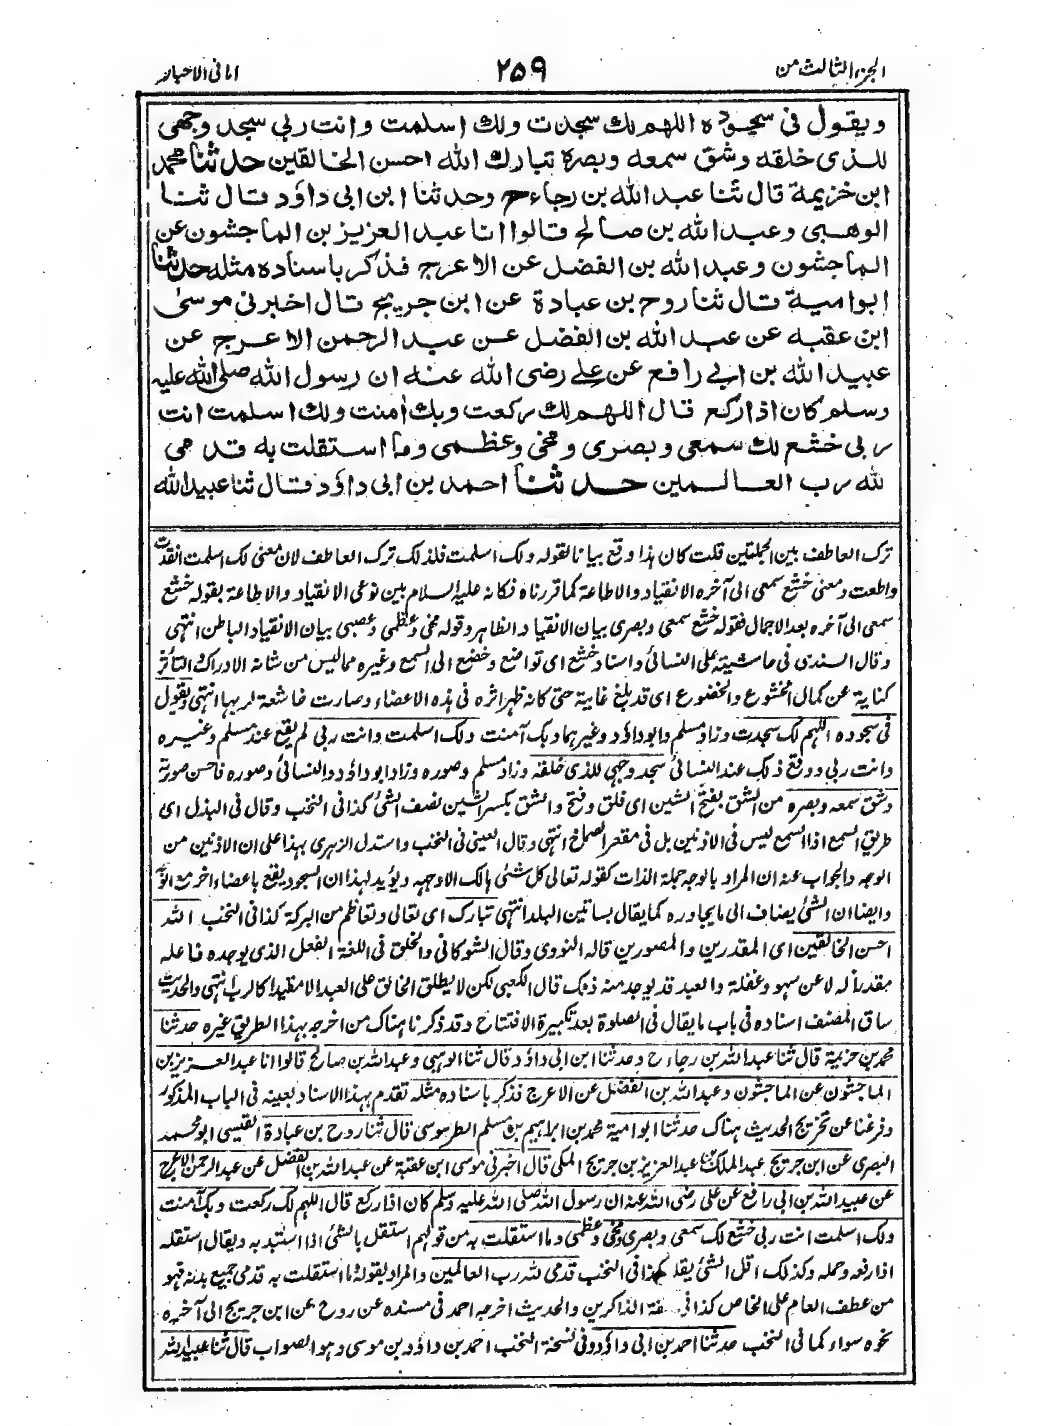 الجزء الثالث من
٢٥٩
امانی الاحبار
ويقول فى سجوده اللهم لك سجدت ولك اسلمت وانت ربي سجد وجهى
للذى خلقه وشق سمعه وبصره تبارك الله احسن الخالقين حدثنا محمد
ابن خزيمة قال ثنا عبد الله بن رجاء ح وحدثنا ابن ابى داؤد قال ثنا
الوهبى وعبد الله بن صالح قالوا انا عبد العزيز بن الماجشون عن
الماجشون وعبد الله بن الفضل عن الاعرج فذكر باسناده مثله حدثنا
ابوامية قال ثنا روح بن عبادة عن ابن جريج قال اخبرنى موسىٰ
ابن عقبه عن عبد الله بن الفضل عن عبد الرحمن الاعرج عن
عبيد الله بن ابي رافع عن علي رضى الله عنه ان رسول الله صلى الله عليه
وسلم كان اذا ركع قال اللهم لك ركعت وبك اٰمنت ولك اسلمت انت
ربى خشع لك سمعى وبصرى ومخى وعظمى وما استقلت به قدمى
لله رب العالمين حدثنا احمد بن ابى داؤد قال ثنا عبيد الله
ترك العاطف بين الجملتين قلت كان هذا وقع بيانا لقوله ولك اسلمت فلذلك ترك العاطف لان معنى لك اسلمت انقدت
واطعت ومعنى خشع سمعى الى آخره الانقياد والاطاعة كما قررناه فكانه عليه السلام بين نوعى الانقياد والاطاعة بقوله خشع
سمعى الى آخره بعد الاجمال فقوله خشع سمعى وبصرى بيان الانقياد الظاهر وقوله مخى وعظمى وعصبى بيان الانقياد الباطن انتهى
وقال السندى فى حاشيته على النسائى واسناد خشع اى تواضع وخضع الى السمع وغيره مما ليس من شانه الادراك والتأثر
كناية عن كمال الخشوع والخضوع اى قد بلغ غايته حتى كانه ظهر اثره فى هذه الاعضاء وصارت خاشعة لربها انتهى ويقول
فى سجوده اللهم لك سجدت وزاد مسلم وابوداؤد وغيرهما وبك آمنت ولك اسلمت وانت ربى لم يقع عند مسلم وغيره
وانت ربى ووقع ذلك عند النسائى سجد وجهى للذى خلقه وزاد مسلم وصوره وزاد ابوداؤد والنسائى وصوره فاحسن صورته
وشق سمعه وبصره من الشق بفتح الشين اى فلق وفتح والشق بكسر الشين نصف الشئ كذا فى النخب وقال فى البذل اى
طريق السمع اذ السمع ليس فى الاذنين بل فى مقعر الصماخ انتهى وقال العينى فى النخب واستدل الزهرى بهذا على ان الاذنين من
الوجه والجواب عنه ان المراد بالوجه جملة الذات كقوله تعالى كل شئ هالك الا وجهه ويؤيد لهذا ان السجود يقع باعضاء اخر مع الوجه
وايضا ان الشئ يضاف الى ما يجاوره كما يقال بساتين البلد انتهى تبارك اى تعالى وتعاظم من البركة كذا فى النخب الله
احسن الخالقين اى المقدرين والمصورين قاله النووى وقال الشوكانى والخلق فى اللغة الفعل الذى يوجده فاعله
مقدرا له لا عن سهو وغفلة والعبد قد يوجد منه ذلك قال الكعبى لكن لا يطلق الخالق على العبد الا مقيدا كالرب انتهى والحديث
ساق المصنف اسناده فى باب ما يقال فى الصلوة بعد تكبيرة الافتتاح وقد ذكرنا هناك من اخرجه بهذا الطريق غيره حدثنا
محمد بن خزيمة قال ثنا عبد الله بن رجاء ح وحدثنا ابن ابى داؤد قال ثنا الوهبى وعبد الله بن صالح قالوا انا عبد العزيز بن
الماجشون عن الماجشون وعبد الله بن الفضل عن الاعرج فذكر باسناده مثله تقدم بهذا الاسناد بعينه فى الباب المذكور
وفرغنا عن تخريج الحديث هناك حدثنا ابوامية محمد بن ابراهيم بن مسلم الطرسوسى قال ثنا روح بن عبادة القيسى ابو محمد
البصرى عن ابن جريج عبد الملك بن عبد العزيز بن جريج المكى قال اخبرنى موسى ابن عقبة عن عبد الله بن الفضل عن عبد الرحمن الاعرج
عن عبيد الله بن ابى رافع عن على رضى الله عنه ان رسول الله صلى الله عليه وسلم كان اذا ركع قال اللهم لك ركعت وبك آمنت
ولك اسلمت انت ربى خشع لك سمعى وبصرى ومخى وعظمى وما استقلت به من قولهم استقل بالشئ اذا استبد به ويقال استقله
اذا رفعه وحمله وكذلك اقل الشئ يقله كذا فى النخب قدمى لله رب العالمين والمراد بقوله ما استقلت به قدمى جميع بدنه فهو
من عطف العام على الخاص كذا فى الذاكرين والحديث اخرجه احمد فى مسنده عن روح عن ابن جريج الى آخره
نحوه سواء كما فى النخب حدثنا احمد بن ابى داؤد وفى نسخة النخب احمد بن داؤد بن موسى وهو الصواب قال ثنا عبيد الله